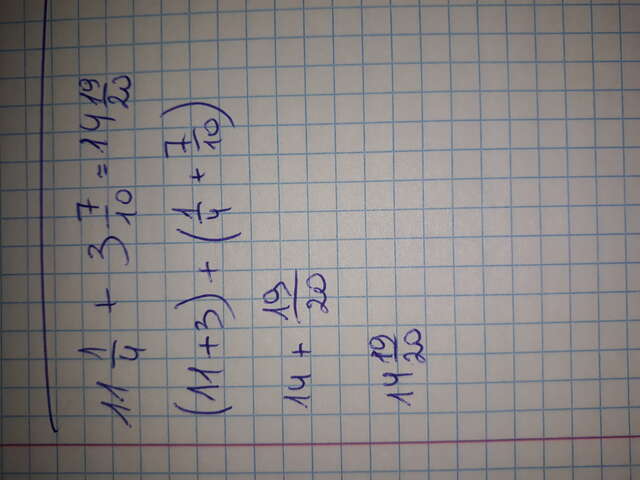 11 1/4 + 3 7/10 = 14 19/20
(11+3) + (1/4 + 7/10)
14 + 19/20
14 19/20